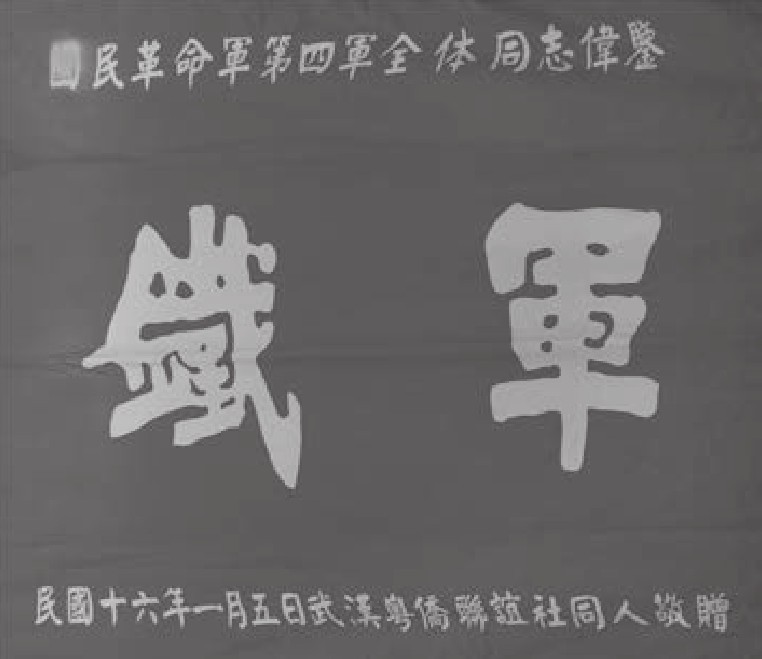 國民革命軍第四軍全体同志偉鑒
鐵軍
民國十六年一月五日武漢粤僑聯誼社同人敬贈